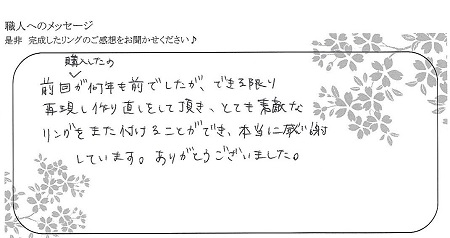 職人へのメッセージ
是非 完成したリングのご感想をお聞かせください♪
購入したの
前回が何年も前でしたが、できる限り
再現し作り直しをして頂き、とても素敵な
リングをまた付けることができ、本当に感謝
しています。ありがとうございました。